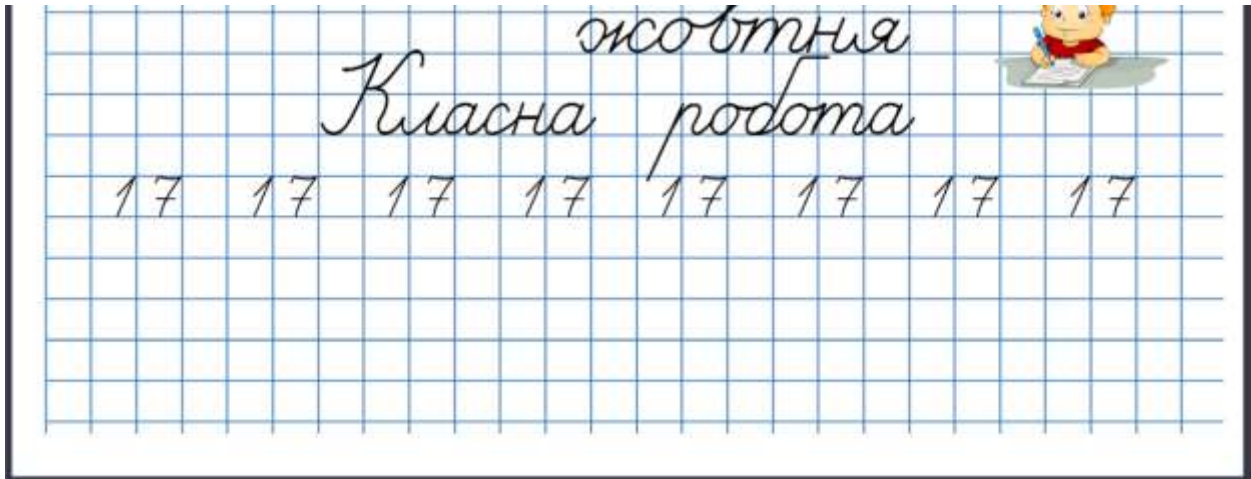 жовтня
Класна робота
17 17 17 17 17 17 17 17